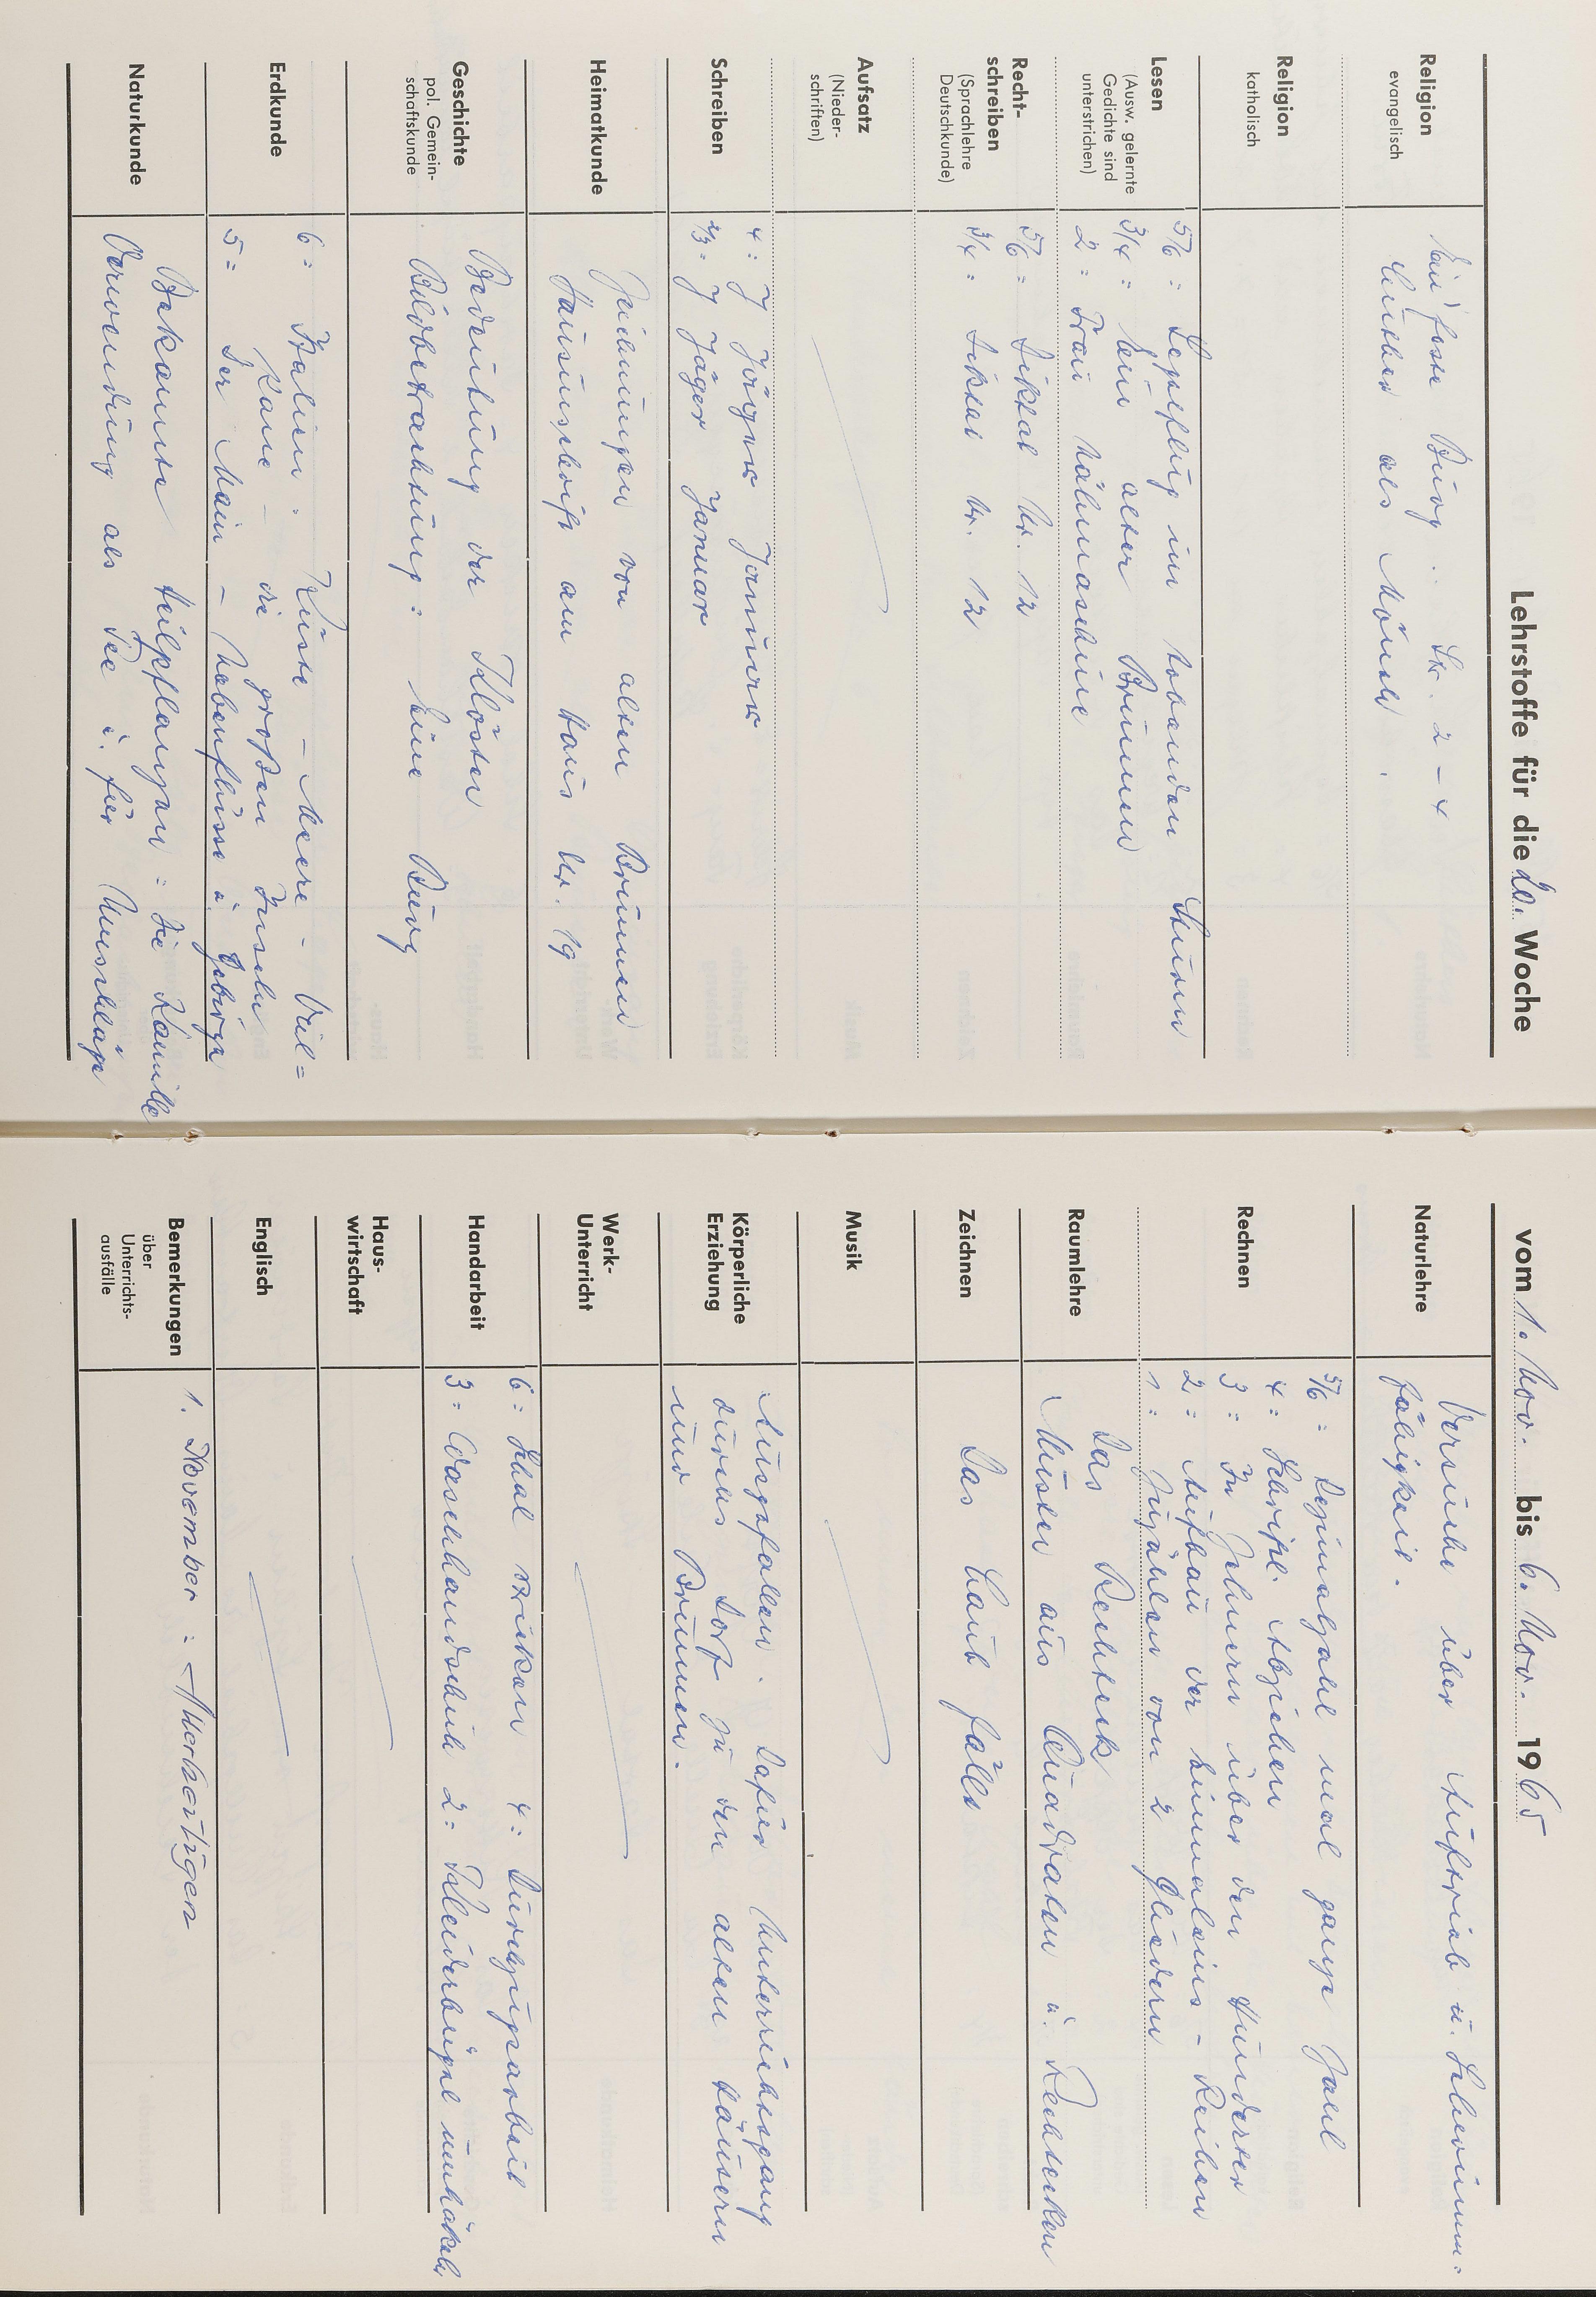 Lehrstoffe für die 20. Woche
Religion
evangelisch
Ein' feste Burg .. Str. 2 – 4
Luther als Mönch.
Religion
katholisch
Lesen
(Ausw. gelernte
Gedichte sind
unterstrichen)
5/6 = Segelflug im tobenden Sturm
3/4 = Ein alter Brunnen
2 = Frau Nähmaschine
Recht-
schreiben
(Sprachlehre
Deutschkunde)
5/6 = Diktat Nr. 12
3/4 = Diktat Nr. 12
Aufsatz
(Nieder-
schriften)
Schreiben
4 = J Jäger Januar
2/3 = J Jäger Januar
Heimatkunde
Zeichnungen von alten Brunnen
Hausinschrift am Haus Nr. 19
Geschichte
pol. Gemein-
schaftskunde
Bedeutung der Klöster
Bildbetrachtung: Eine Burg
Erdkunde
6 = Italien: Küste – Meere – Vul=
kane – die großen Inseln
5 = Der Main – Nebenflüsse u. Gebirge
Naturkunde
Bekannte Heilpflanzen = Die Kamille
Verwendung als Tee u. für Umschläge
vom 1. Nov. bis 6. Nov. 1965
Naturlehre
Versuche über Auftrieb u. Schwimm=
fähigkeit.
Rechnen
5/6 = Dezimalzahl mal ganze Zahl
4 = Schriftl. Abziehen
3 = In Zehnern über den Hunderter
2 = Aufbau der Einmaleins – Reihen
1 = Zuzählen von 2 Gliedern
Raumlehre
Das Rechteck
Muster aus Quadraten u. Rechtecken
Zeichnen
Das Laub fällt
Musik
Körperliche
Erziehung
Ausgefallen. Dafür Unterrichtsgang
durchs Dorf zu den alten Häusern
und Brunnen.
Werk-
Unterricht
Handarbeit
6 = Schal stricken 4 = Durchzugsarbeit
3 = Waschhandschuh 2 = Kleiderbügel umhäkeln
Haus-
wirtschaft
Englisch
Bemerkungen
über
Unterrichts-
ausfälle
1. November = Allerheiligen